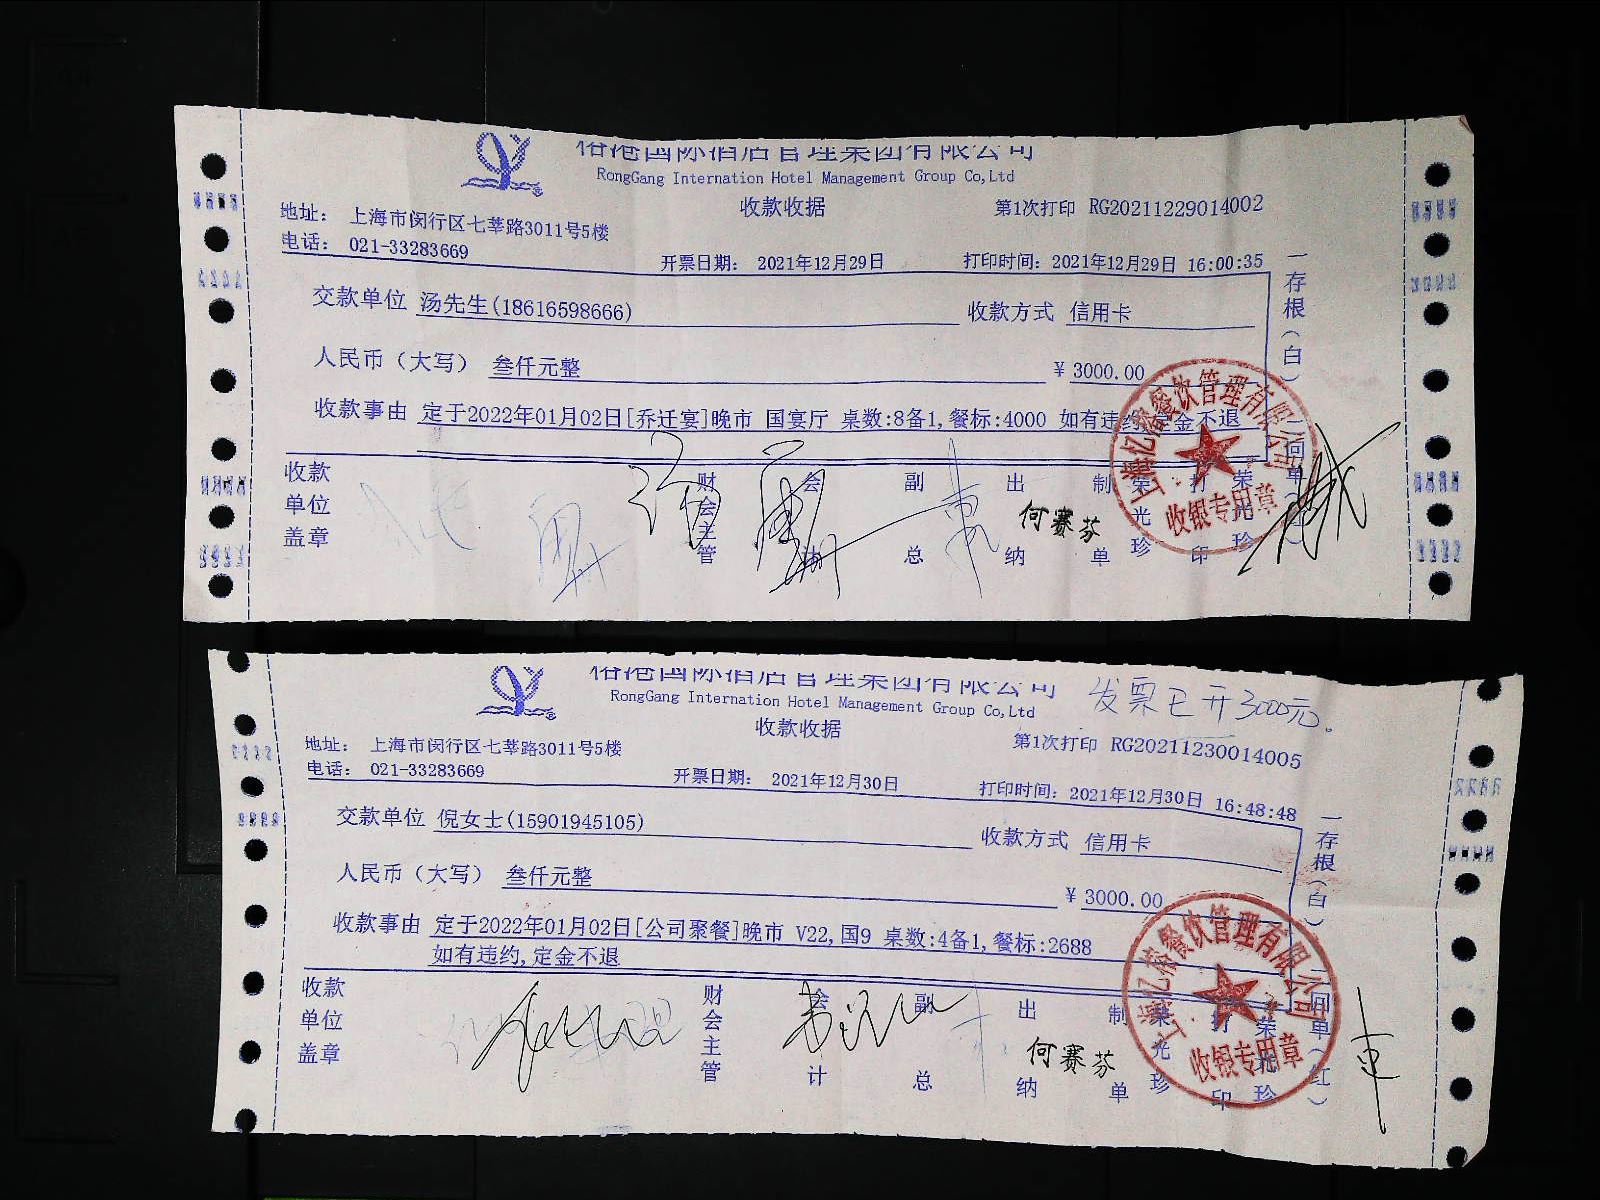 裕港国际酒店管理集团有限公司
RongGang Internation Hotel Management Group Co,Ltd
收款收据
第1次打印 RG20211229014002
地址： 上海市闵行区七莘路3011号5楼
电话： 021-33283669
开票日期： 2021年12月29日
打印时间：2021年12月29日 16:00:35
交款单位 汤先生(18616598666)
收款方式 信用卡
人民币（大写） 叁仟元整
￥3000.00
收款事由 定于2022年01月02日[乔迁宴]晚市 国宴厅 桌数:8备1,餐标:4000 如有违约,定金不退
收款单位盖章
财会主管
会计
副总
出纳
何赛芬
制单
荣光珍
打印
荣光珍
一存根（白）
二回单（红）
上海亿裕餐饮管理有限公司
收银专用章
裕港国际酒店管理集团有限公司
RongGang Internation Hotel Management Group Co,Ltd
发票已开3000元。
收款收据
第1次打印 RG20211230014005
地址： 上海市闵行区七莘路3011号5楼
电话： 021-33283669
开票日期： 2021年12月30日
打印时间：2021年12月30日 16:48:48
交款单位 倪女士(15901945105)
收款方式 信用卡
人民币（大写） 叁仟元整
￥3000.00
收款事由 定于2022年01月02日[公司聚餐]晚市 V22,国9 桌数:4备1,餐标:2688
如有违约,定金不退
收款单位盖章
财会主管
会计
副总
出纳
何赛芬
制单
荣光珍
打印
荣光珍
一存根（白）
二回单（红）
上海亿裕餐饮管理有限公司
收银专用章